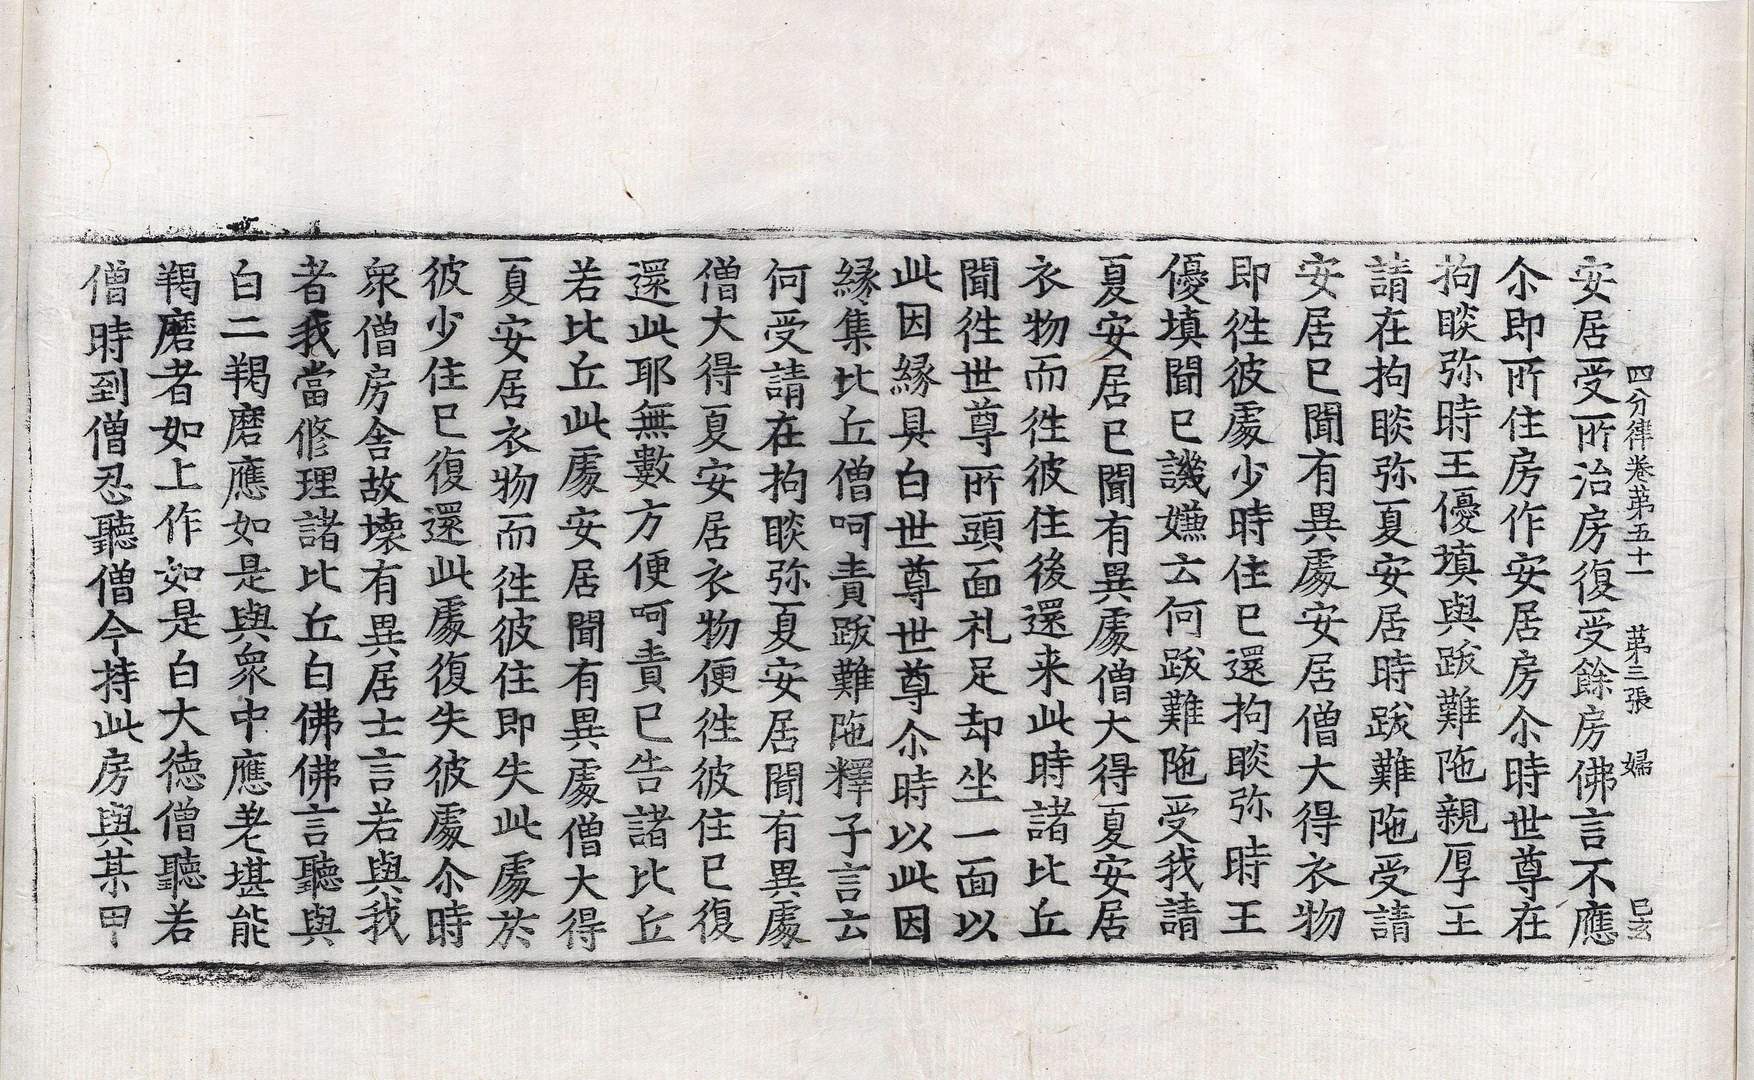 四分律卷苐五十一 苐三張 婦 巳玄
安居受所治房復受餘房佛言不應
尒即所住房作安居房尒時世尊在
拘睒弥時王優填與跋難陁親厚王
請在拘睒弥夏安居時跋難陁受請
安居已聞有異處安居僧大得衣物
即徃彼處少時住已還拘睒弥時王
優填聞已譏嫌云何跋難陁受我請
夏安居已聞有異處僧大得夏安居
衣物而徃彼住後還来此時諸比丘
聞徃世尊所頭面礼足却坐一面以
此因縁具白世尊世尊尒時以此因
縁集比丘僧呵責跋難陁釋子言云
何受請在拘睒弥夏安居聞有異處
僧大得夏安居衣物便徃彼住已復
還此耶無數方便呵責已告諸比丘
若比丘此處安居聞有異處僧大得
夏安居衣物而徃彼住即失此處於
彼少住已復還此處復失彼處尒時
衆僧房舍故壞有異居士言若與我
者我當修理諸比丘白佛佛言聽與
白二羯磨應如是與衆中應差堪能
羯磨者如上作如是白大德僧聽若
僧時到僧忍聽僧今持此房與某甲